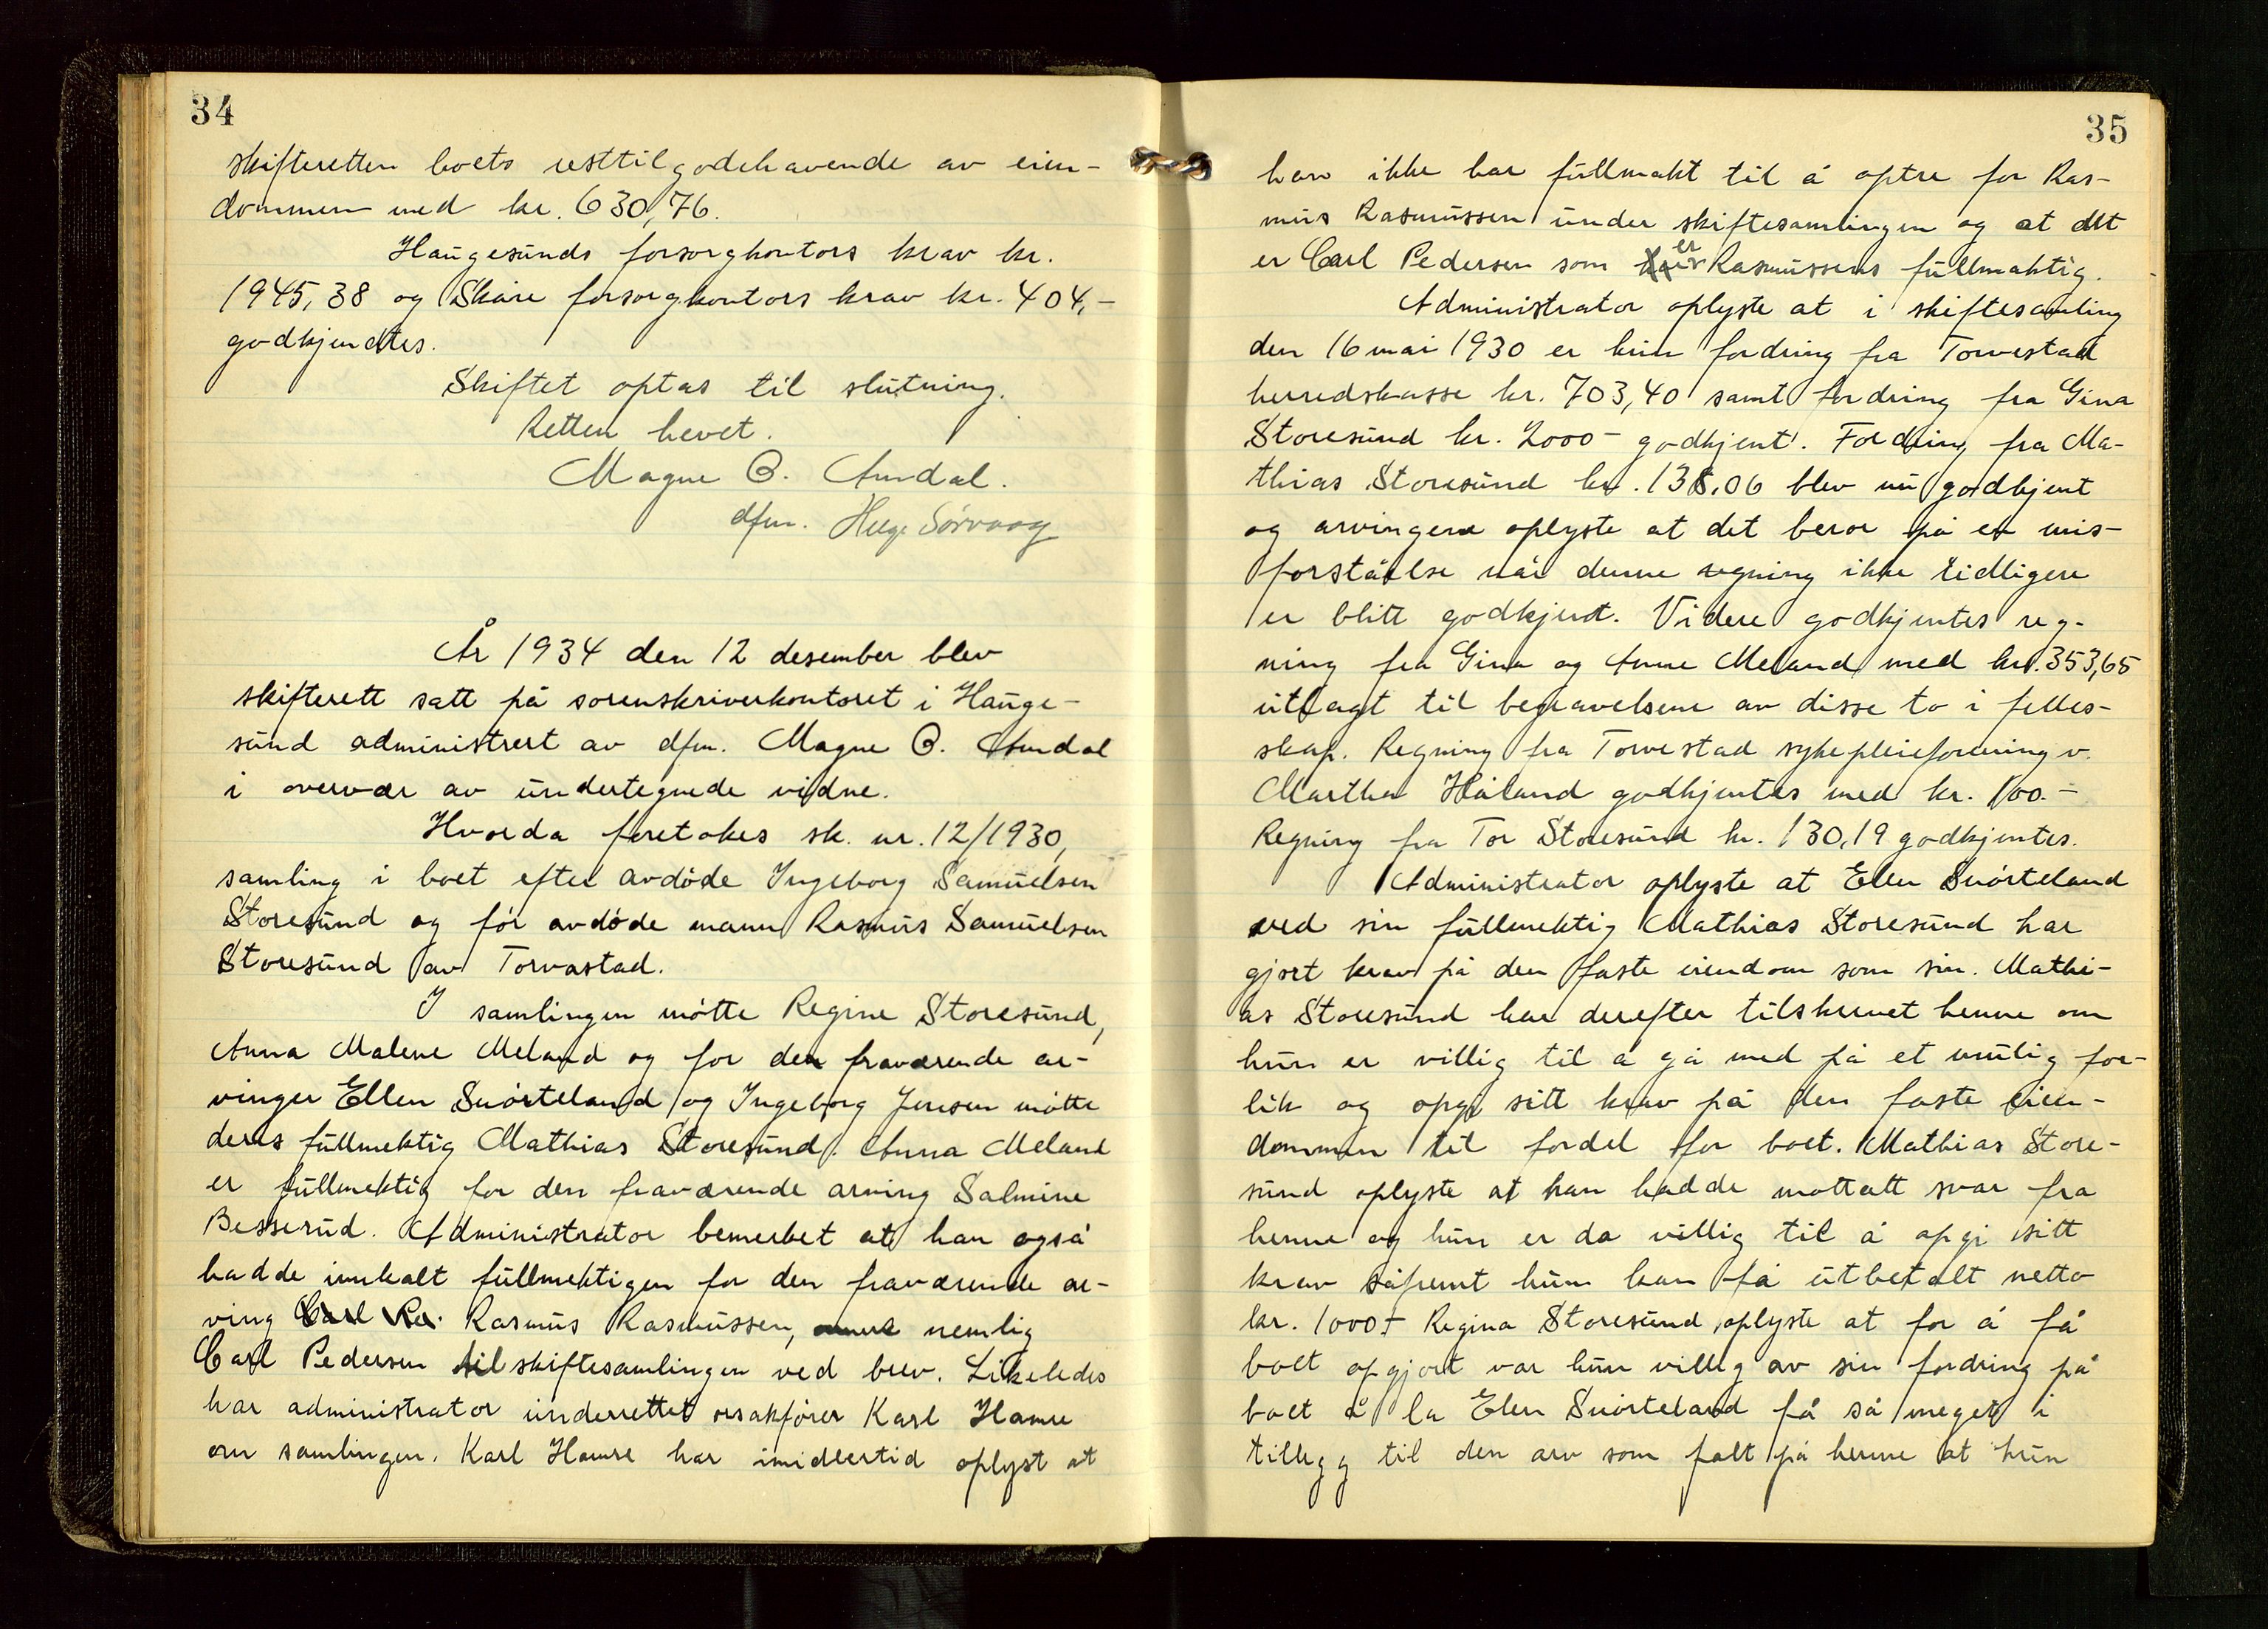 34
skifteretten boets resttilgodehavende av eien-
dommen med kr. 630,76.
Haugesunds forsorgkontors krav kr.
1945,38 og Skåre forsorgkontors krav kr. 404,-
godkjendtes.
Skiftet optas til slutning.
Retten hevet.
Magne B. Aurdal.
dfm. Helge Sørvaag
År 1934 den 12 desember blev
skifterett satt på sorenskriverkontoret i Hauge-
sund administrert av dfm. Magne B. Aurdal
i overvær av undertegnede vidne.
Hvorda foretokes sk. nr. 12/1930,
samling i boet efter avdøde Ingeborg Samuelsen
Storesund og før avdøde mann Rasmus Samuelsen
Storesund av Torvastad.
I samlingen møtte Regine Storesund,
Anna Malene Meland og for den fraværende ar-
vinger Ellen Snørteland og Ingeborg Jensen møtte
deres fullmektig Mathias Storesund. Anna Meland
er fullmektig for den fraværende arving Salmine
Besserud. Administrator bemerket at han også
hadde innkalt fullmektigen for den fraværende ar-
ving Carl Pe. Rasmus Rasmussen, nemlig
Carl Pedersen til skiftesamlingen ved brev. Likeledes
har administrator underrettet orsakfører Karl Hamre
om samlingen. Karl Hamre har imidlertid oplyst at
35
han ikke har fullmakt til å optre for Ras-
mus Rasmussen under skiftesamlingen og at det
er Carl Pedersen som er Rasmussens fullmaktig.
Administrator oplyste at i skiftesamling
den 16 mai 1930 er kun fordring fra Torvestad
herredskasse kr. 703,40 samt fordring fra Gina
Storesund kr. 2000- godkjent. Fordring fra Ma-
thias Storesund kr. 138,06 blev nu godkjent
og arvingene oplyste at det beror på en mis-
forståelse når denne regning ikke tidligere
er blitt godkjent. Videre godkjentes reg-
ning fra Gina og Anne Meland med kr. 353,65
utlagt til begravelsene av disse to i felles-
skap. Regning fra Torvestad sykepleieforening v.
Martha Håland godkjentes med kr. 100.-
Regning fra Tor Storesund kr. 130,19 godkjentes.
Administrator oplyste at Elen Snørteland
ved sin fullmektig Mathias Storesund har
gjort krav på den faste eiendom som sin. Mathi-
as Storesund har derefter tilskrevet henne om
hun er villig til å gå med på et mulig for-
lik og opgi sitt krav på den faste eien-
dommen til fordel for boet. Mathias Store-
sund oplyste at han hadde mottatt svar fra
henne og hun er da villig til å opgi sitt
krav såfremt hun kan få utbetalt netto
kr. 1000.- Regina Storesund oplyste at for å få
boet opgjort var hun villig av sin fordring på
boet å la Elen Snørteland få så meget i
tillegg til den arv som falt på henne at hun